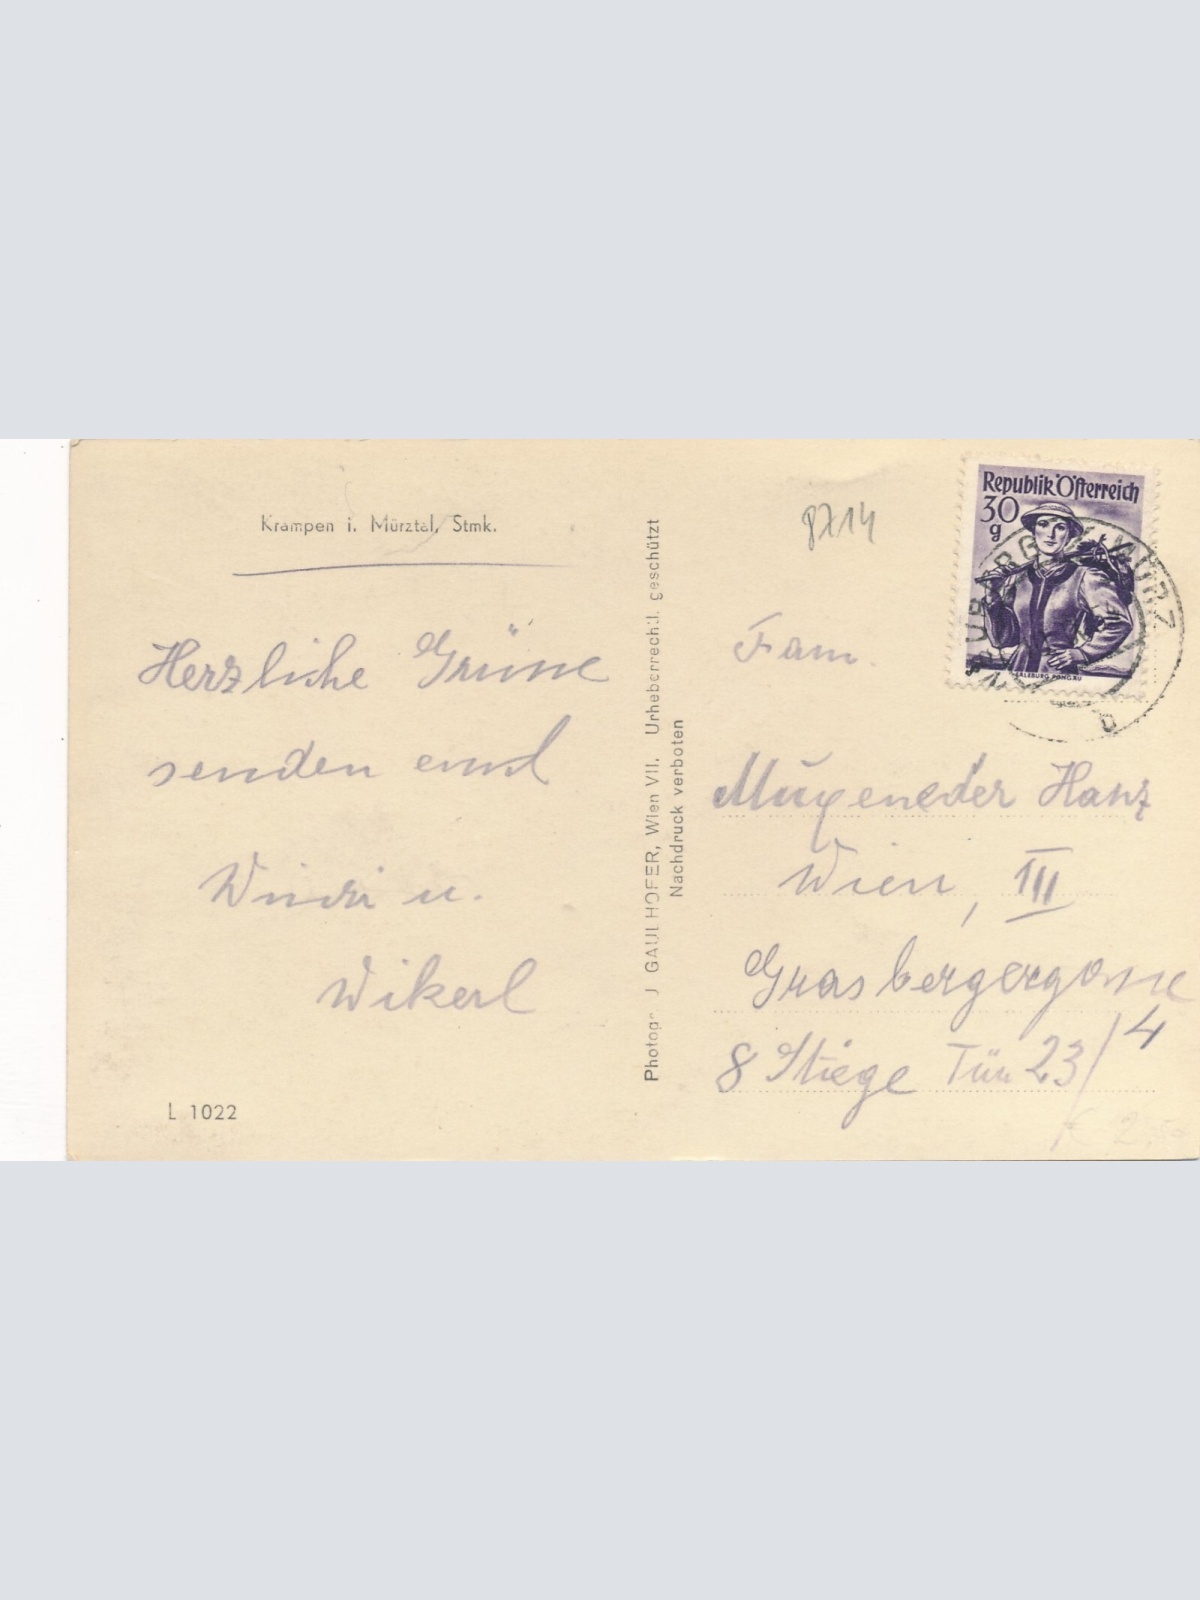 Krampen i. Mürztal, Stmk.
Herzliche Grüsse
senden euch
u.
Wikerl
L 1022
Photogr. J. GAULHOFER, Wien VII. Urheberrechtl. geschützt
Nachdruck verboten
8714
Republik Österreich
30
g
SALZBURG, PONGAU
NEUBERG A.D. MÜRZ
b
Fam.
Mugeneder Hans
Wien, III
Grasbergergasse
8 Stiege Tür 23/4
€ 2,50